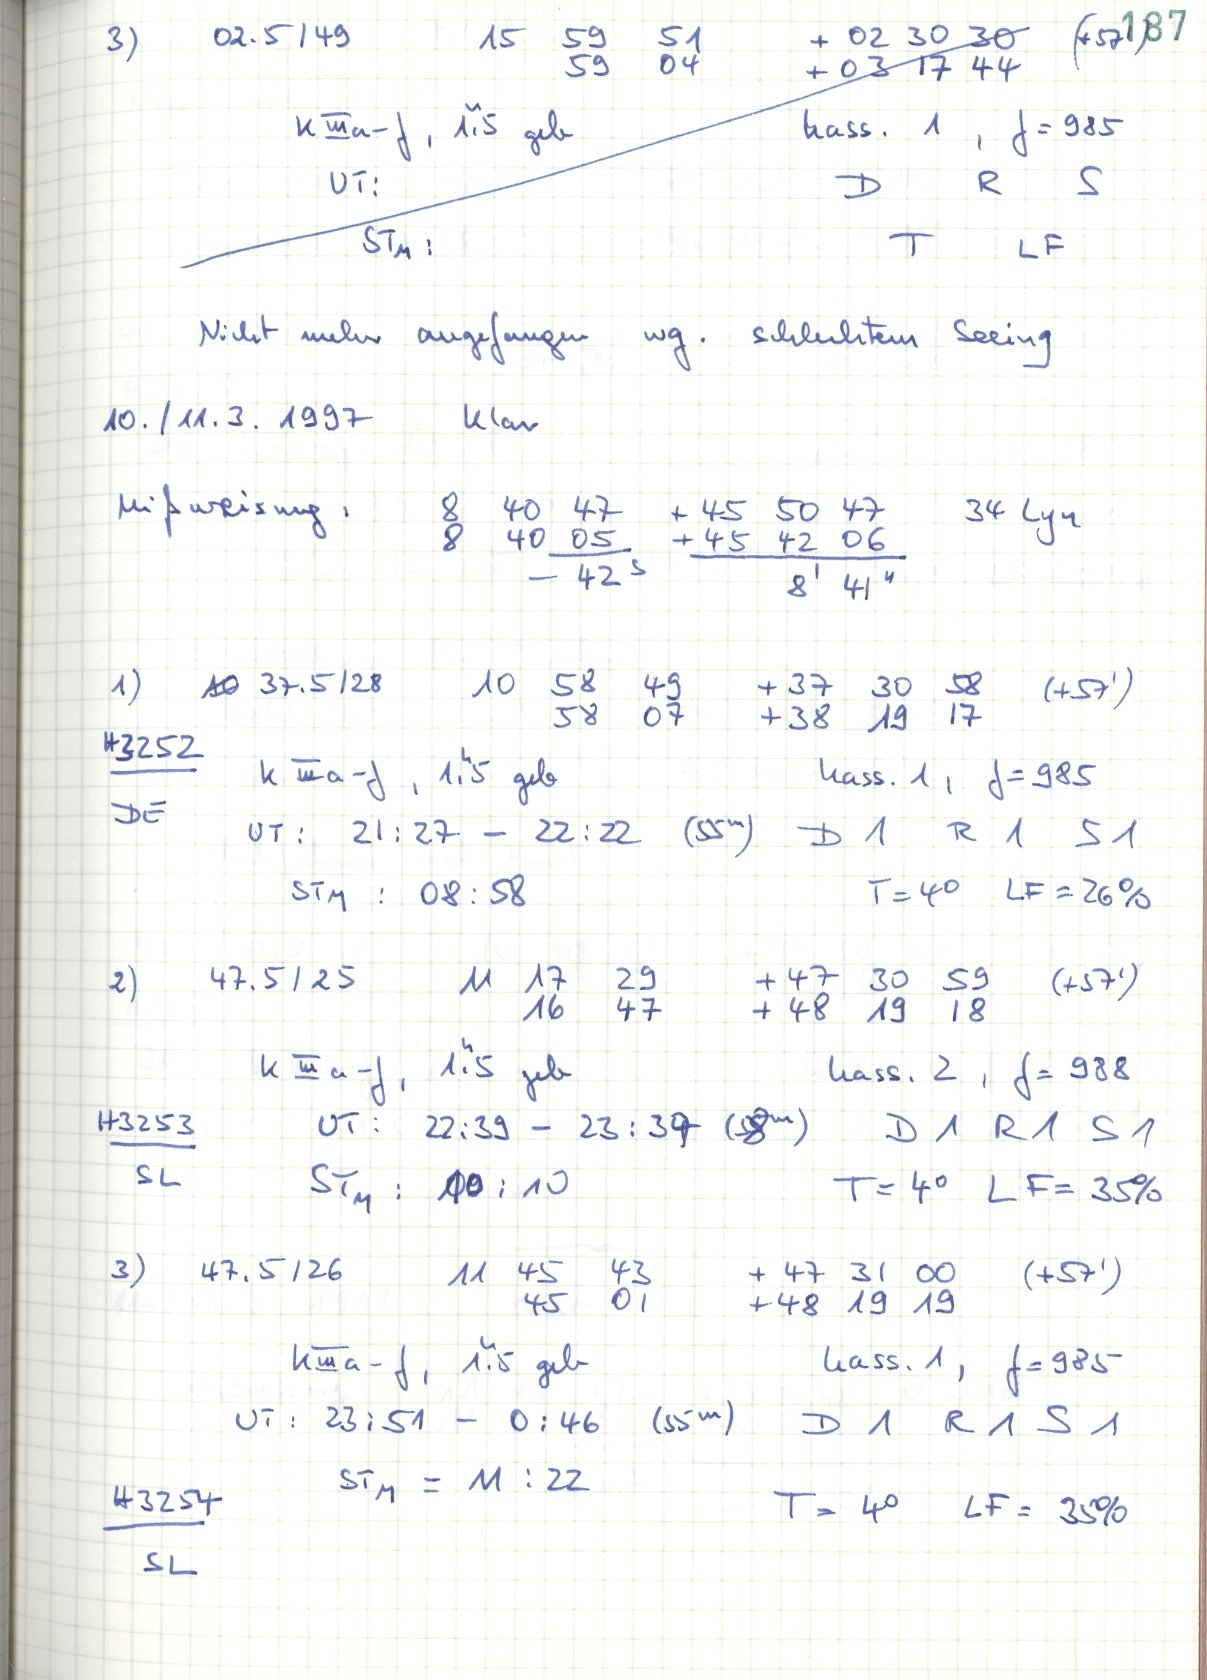 187
3) 02.5/49 15 59 51 + 02 30 30 (+57')
59 04 + 03 17 44
K IIIa-f, 1ʰ.5 geb Kass. 1, f = 985
UT: D R S
STM: T LF
Nicht mehr angefangen wg. schlechtem Seeing
10./11.3. 1997 Klar
Mißweisung: 8 40 47 + 45 50 47 34 Lyn
8 40 05 + 45 42 06
- 42ˢ 8' 41"
1) 37.5/28 10 58 49 + 37 30 58 (+57')
58 07 + 38 19 17
H3252
K IIIa-f, 1ʰ.5 geb Kass. 1, f = 985
DE
UT: 21:27 - 22:22 (55ᵐ) D 1 R 1 S 1
STM: 08:58 T = 4° LF = 26%
2) 47.5/25 11 17 29 + 47 30 59 (+57')
16 47 + 48 19 18
K IIIa-f, 1ʰ.5 geb Kass. 2, f = 988
H3253 UT: 22:39 - 23:37 (58ᵐ) D 1 R 1 S 1
SL STM: 10:10 T = 4° LF = 35%
3) 47.5/26 11 45 43 + 47 31 00 (+57')
45 01 + 48 19 19
K IIIa-f, 1ʰ.5 geb Kass. 1, f = 985
UT: 23:51 - 0:46 (55ᵐ) D 1 R 1 S 1
STM = 11:22
H3254 T = 4° LF = 35%
SL